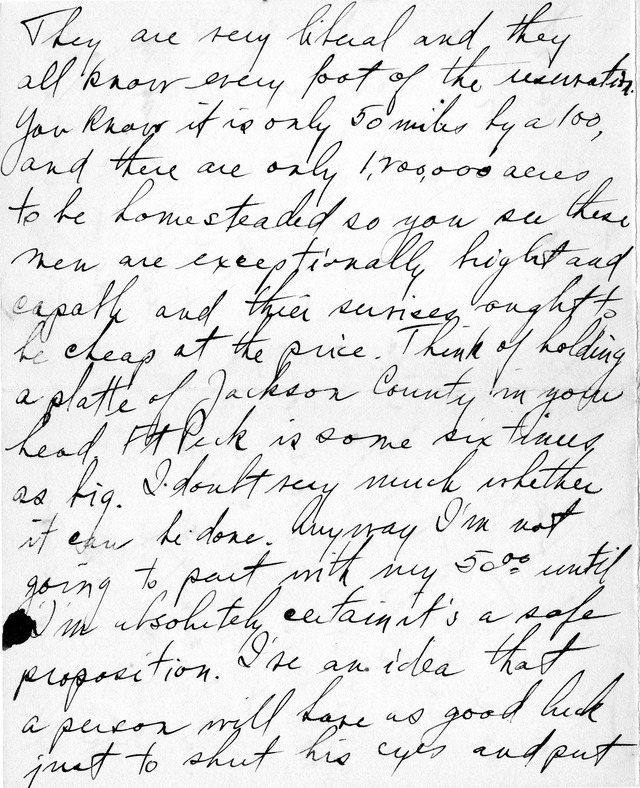 They are very liberal and they
all know every foot of the reservation.
You know it is only 50 miles by a 100,
and there are only 1,200,000 acres
to be homesteaded so you see these
men are exceptionally bright and
capable and thier servises ought to
be cheap at the price. Think of holding
a platte of Jackson County in your
head. Ft Peck is some six times
as big. I doubt very much whether
it can be done. Anyway I'm not
going to part with my 50 00 until
I'm absolutely certain it's a safe
proposition. I've an idea that
a person will have as good luck
just to shut his eyes and put